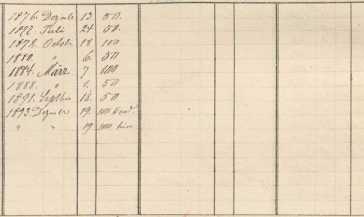 1876. Dezmb 13 50.
1877. Juli 24. 50.
1878. Octobr 18 100
1880. " 6. 50
1884. März 7 100
1888. " 50
1891. Septbr 14. 50
1893 Dezmber 19. 100
" " 19 100